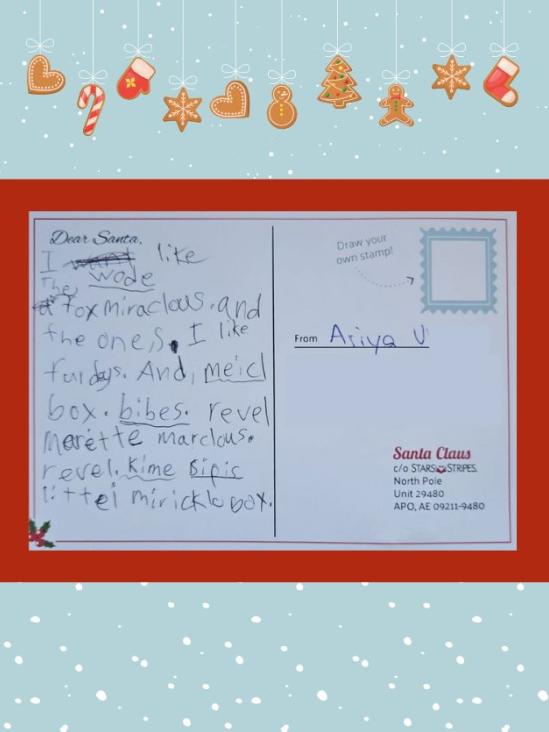 Dear Santa,
I want like
The wode
fox miraclous. and
the ones. I like
furdays. And, meicl
box. bibes. revel
Merette marclous.
revel. Kime Bipic
littel miricklo box.
Draw your
own stamp!
From Ariya V
Santa Claus
c/o STARS STRIPES.
North Pole
Unit 29480
APO, AE 09211-9480